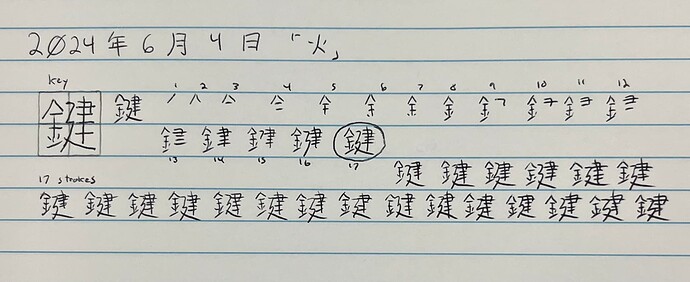 2024年6月4日「火」
key
鍵 鍵 1 2 3 4 5 6 7 8 9 10 11 12
13 14 15 16 17
鍵
17 strokes 鍵 鍵 鍵 鍵 鍵 鍵
鍵 鍵 鍵 鍵 鍵 鍵 鍵 鍵 鍵 鍵 鍵 鍵 鍵 鍵 鍵